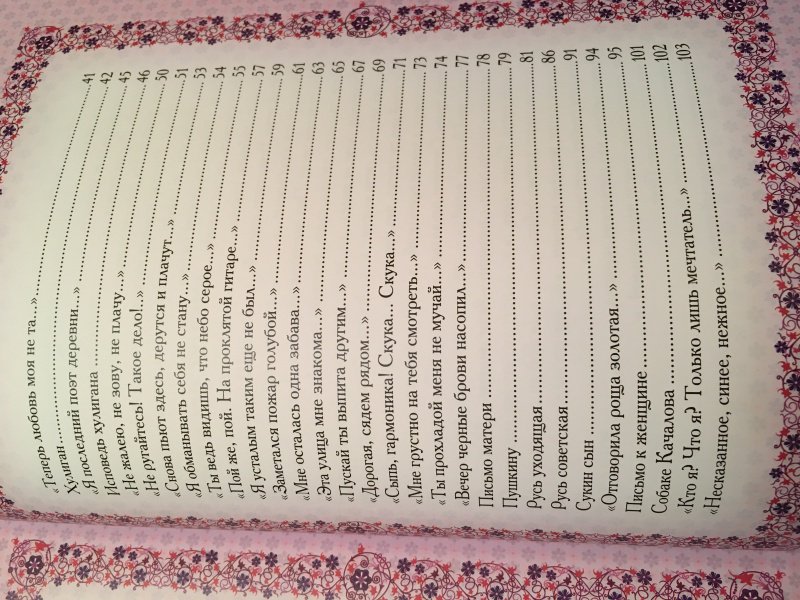 «Теперь любовь моя не та...» 41
Хулиган 42
«Я последний поэт деревни...» 45
Исповедь хулигана 46
«Не жалею, не зову, не плачу...» 50
«Не ругайтесь! Такое дело!..» 51
«Снова пьют здесь, дерутся и плачут...» 53
«Я обманывать себя не стану...» 54
«Ты ведь видишь, что небо серое...» 55
«Пой же, пой. На проклятой гитаре...» 57
«Я усталым таким еще не был...» 59
«Заметался пожар голубой...» 61
«Мне осталась одна забава...» 63
«Эта улица мне знакома...» 65
«Пускай ты выпита другим...» 67
«Дорогая, сядем рядом...» 69
«Сыпь, гармоника! Скука... Скука...» 71
«Мне грустно на тебя смотреть...» 73
«Ты прохладой меня не мучай...» 74
«Вечер черные брови насопил...» 77
Письмо матери 78
Пушкину 79
Русь уходящая 81
Русь советская 86
Сукин сын 91
«Отговорила роща золотая...» 94
Письмо к женщине 95
Собаке Качалова 101
«Кто я? Что я? Только лишь мечтатель...» 102
«Несказанное, синее, нежное...» 103